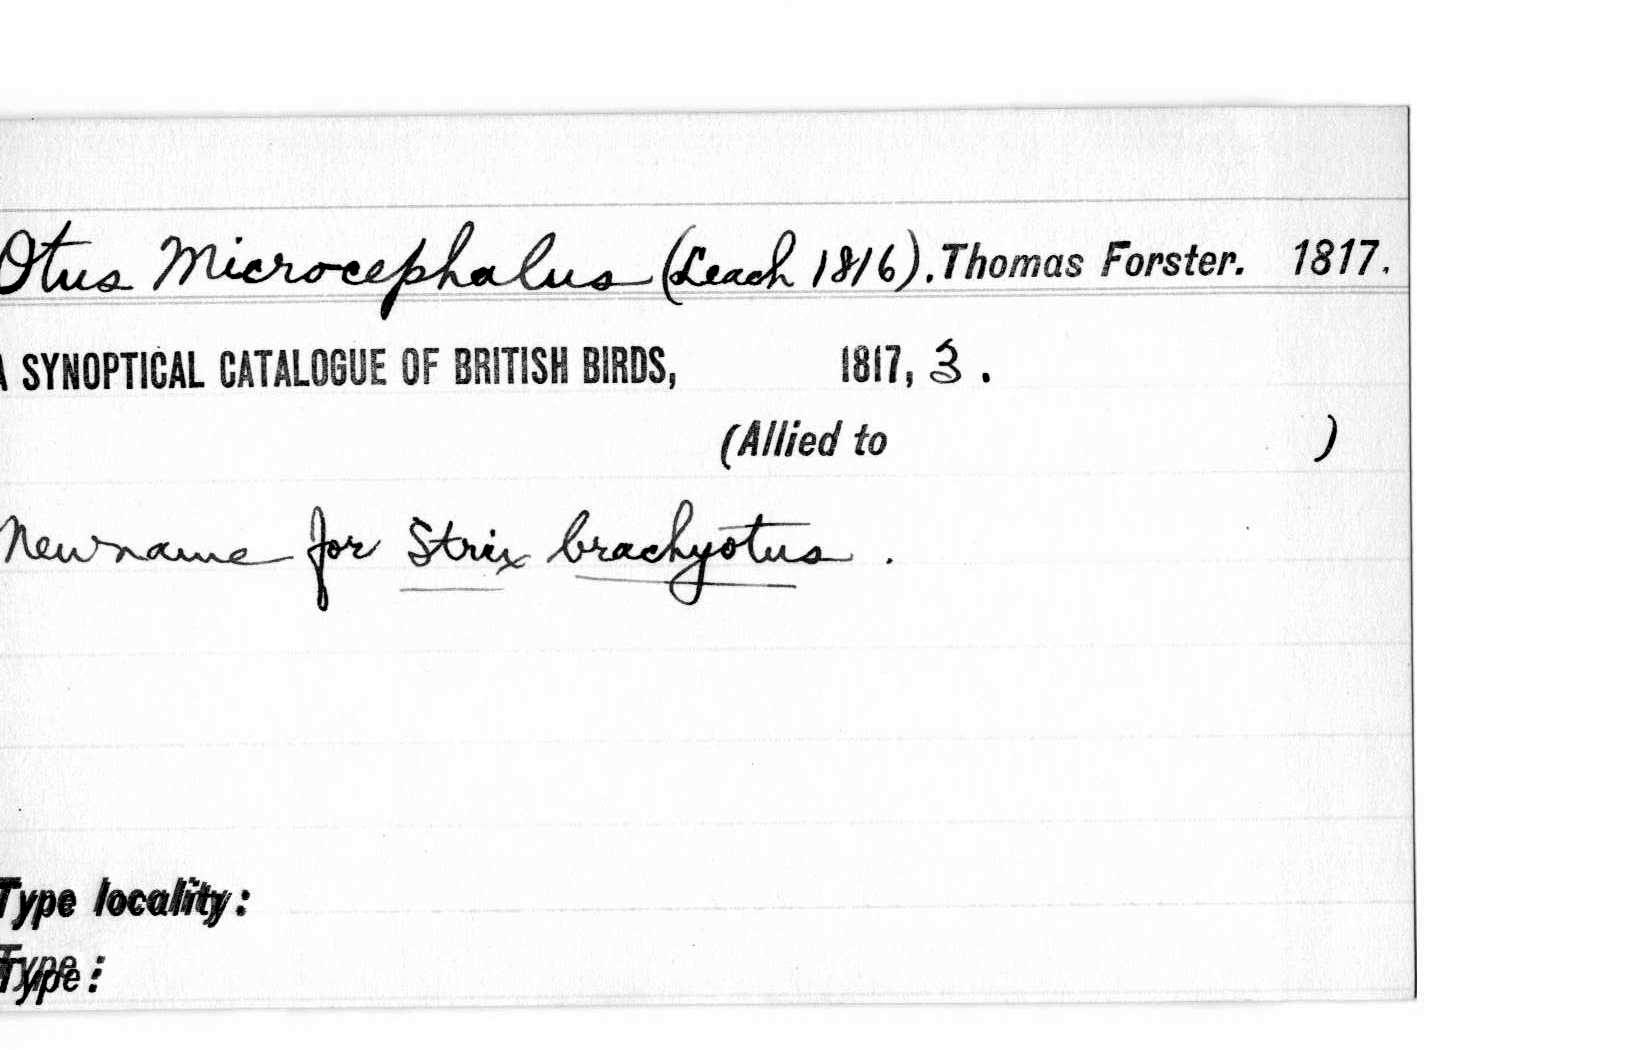 Otus Microcephalus (Leach 1816). Thomas Forster. 1817.
A SYNOPTICAL CATALOGUE OF BRITISH BIRDS, 1817, 3.
(Allied to )
New name for Strix brachyotus.
Type locality:
Type: